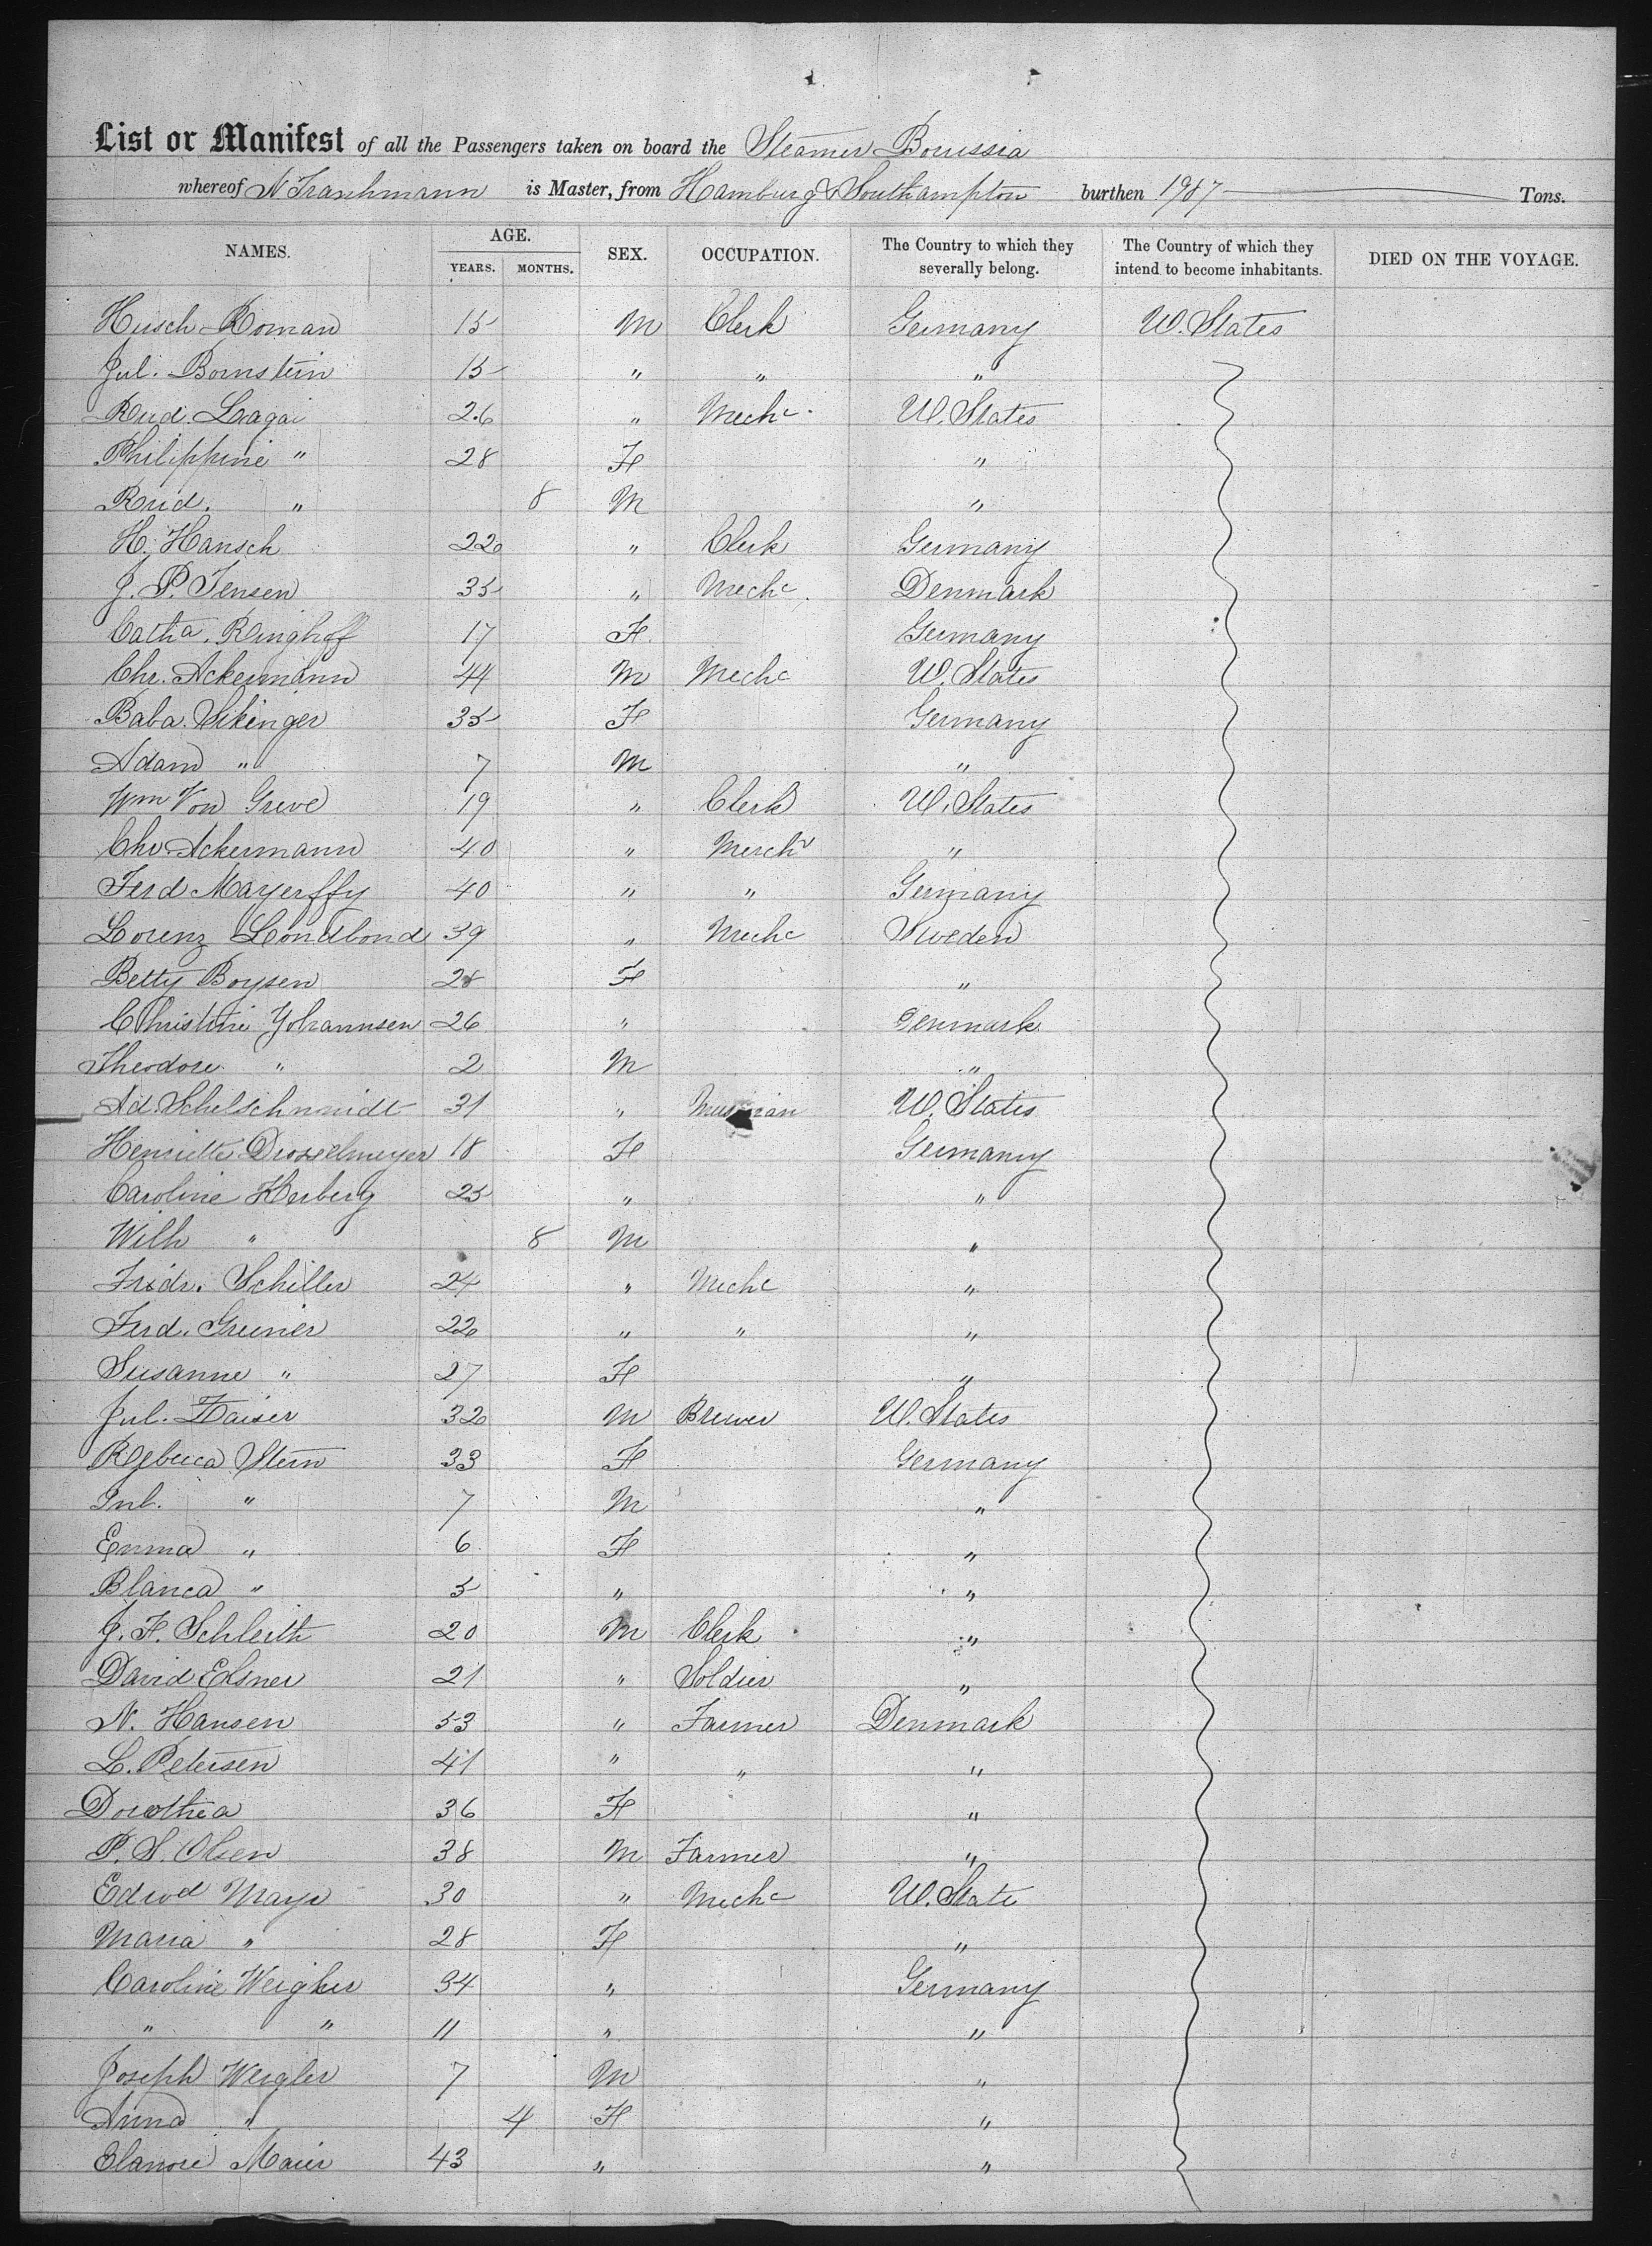 List or Manifest of all the Passengers taken on board the Steamer Borussia
whereof N Traschmann is Master, from Hamburg & Southampton burthen 1987 Tons.
NAMES. AGE. YEARS. MONTHS. SEX. OCCUPATION. The Country to which they severally belong. The Country of which they intend to become inhabitants. DIED ON THE VOYAGE.
Husch Roman 15 M Clerk Germany U. States
Jul. Bornstein 15 " " "
Rud. Lagai 26 " Mechc. U. States
Philippine " 28 F "
Rud. " 8 M "
H. Hansch 22 " Clerk Germany
J. P. Jensen 35 " Mechc. Denmark
Catha. Ringhoff 17 F. Germany
Chr. Ackermann 44 M Mechc U. States
Baba. Sikinger 35 F Germany
Adam " 7 M "
Wm Von Greve 19 " Clerk U. States
Chr. Ackermann 40 " Mercht "
Ferd Mayerffy 40 " " Germany
Lorenz Londbond 39 " Mechc Sweden
Betty Boysen 28 F "
Christine Yohannsen 26 " Denmark
Theodore " 2 M "
Ad. Schelschmidt 31 " Musician U. States
Henriette Drosselmeyer 18 F Germany
Caroline Herberg 25 " "
Wilh " 8 M "
Fridr. Schiller 24 " Mechc "
Ferd. Greiner 22 " " "
Susanne " 27 F "
Jul. Kaiser 32 M Brewer U. States
Rebecca Stern 33 F Germany
Jul. " 7 M "
Emma " 6 F "
Blanca " 5 " "
J. F. Schleith 20 M Clerk "
David Elsner 21 " Soldier "
N. Hansen 53 " Farmer Denmark
L. Petersen 41 " " "
Dorothea 36 F "
P. S. Olsen 38 M Farmer "
Edwd Mayr 30 " Mechc U. State
Maria " 28 F "
Caroline Weigher 34 " Germany
" " 11 " "
Joseph Weigler 7 M "
Anna " 4 F "
Elanore Maier 43 " "